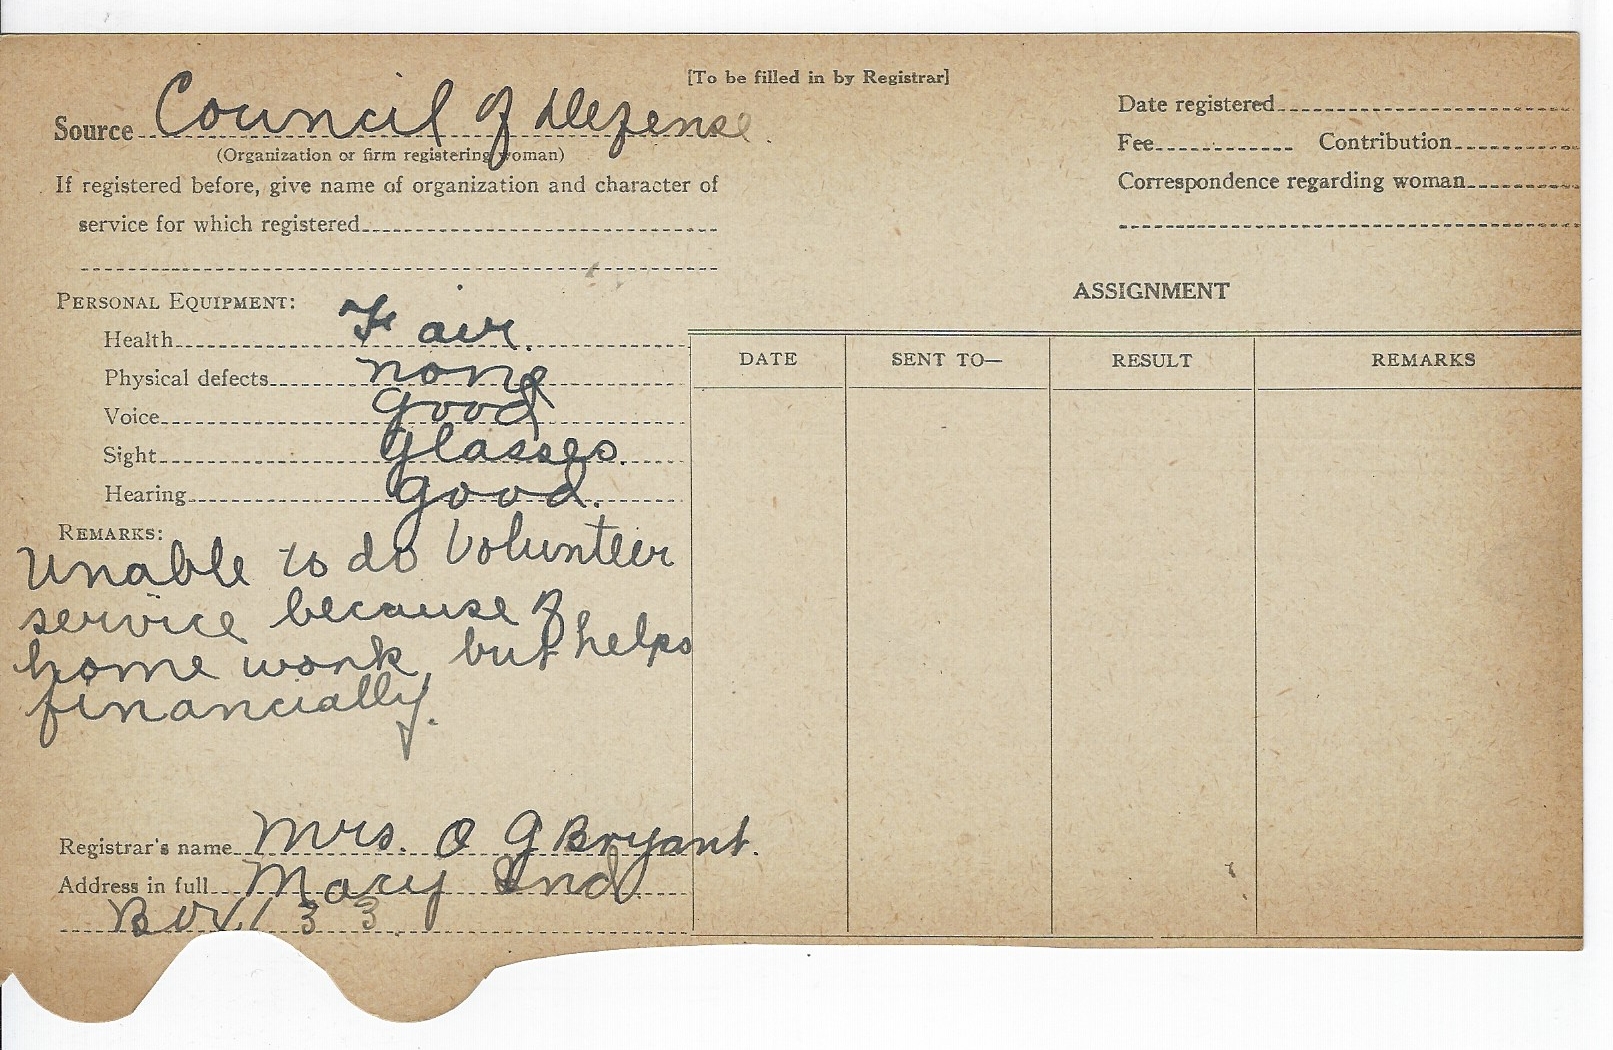 [To be filled in by Registrar]
Source Council of Defense
(Organization or firm registering woman)
If registered before, give name of organization and character of
service for which registered
PERSONAL EQUIPMENT:
Health Fair.
Physical defects none
Voice good
Sight glasses.
Hearing good.
REMARKS:
Unable to do Volunteer
service because of
home work, but helps
financially.
Registrar's name Mrs. O G Bryant.
Address in full Macy Ind.
Box 133
Date registered
Fee Contribution
Correspondence regarding woman
ASSIGNMENT
DATE SENT TO— RESULT REMARKS